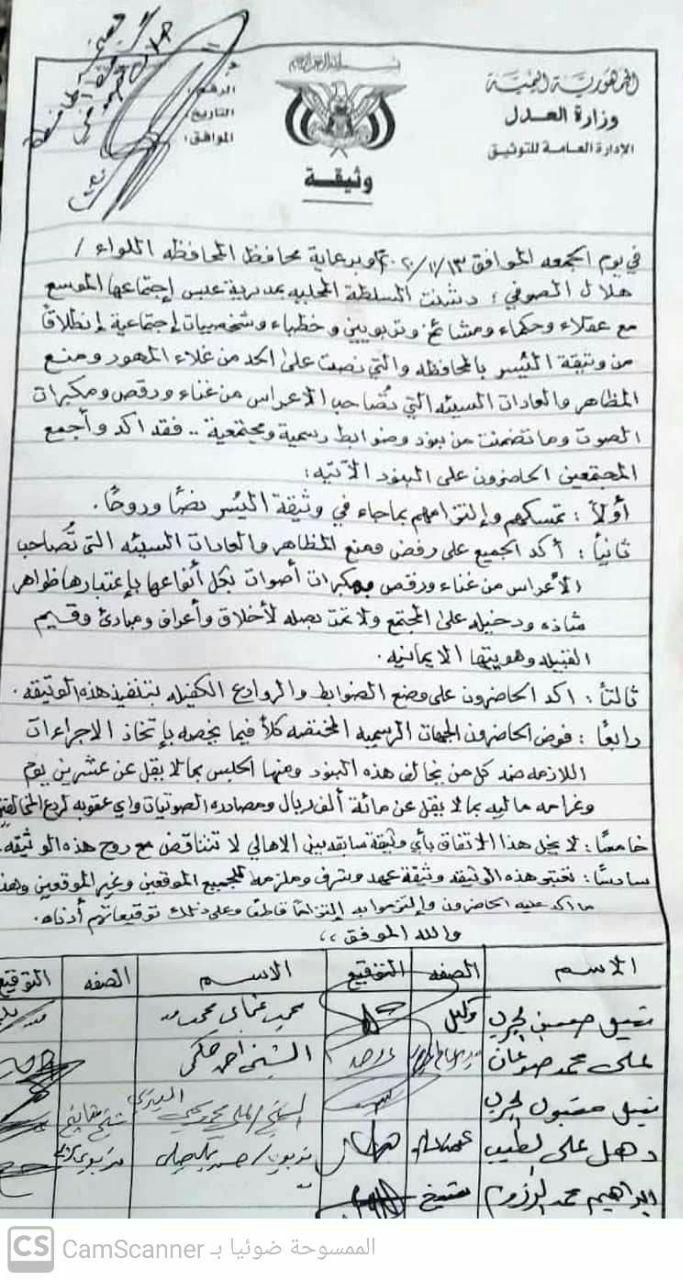 الجمهورية اليمنية
وزارة العدل
الإدارة العامة للتوثيق
بسم الله الرحمن الرحيم
الرقم:
التاريخ:
الموافق:
وثيقة
في يوم الجمعه الموافق ١٣/١١/٢٠٢٠م وبرعاية محافظ المحافظه اللواء /
هلال الصوفي ؛ دشنت السلطة المحليه بمديرية عبس إجتماعها الموسع
مع عقلاء وحكماء ومشائخ وتربويين وخطباء وشخصيات إجتماعية إنطلاقاً
من وثيقة اليُسر بالمحافظه والتي نصت على الحد من غلاء المهور ومنع
المظاهر والعادات السيئه التي تُصاحب الاعراس من غناء ورقص ومكبرات
الصوت وما تضمنت من بنود وضوابط رسمية ومجتمعية .. فقد اكد وأجمع
المجتمعين الحاضرون على البنود الآتيه :
أولاً : تمسكهم وإلتزامهم بماجاء في وثيقة اليُسر نصاً وروحاً .
ثانياً : أكد الجميع على رفض ومنع المظاهر والعادات السيئه التي تُصاحب
الأعراس من غناء ورقص ومكبرات أصوات بكل أنواعها بإعتبارها ظواهر
شاذه ودخيله على المجتمع ولا تمت بصله لأخلاق وأعراف ومبادئ وقيم
القبيله وهويتها الايمانيه .
ثالثاً : اكد الحاضرون على وضع الضوابط والروادع الكفيله بتنفيذ هذه الوثيقه .
رابعاً : فوض الحاضرون الجهات الرسميه المختصه كلاً فيما يخصه بإتخاذ الاجراءات
اللازمه ضد كل من يخالف هذه البنود ومنها الحبس بما لا يقل عن عشرين يوم
وغرامه ماليه بما لا يقل عن مائة ألف ريال ومصادره الصوتيات واي عقوبه لردع المخالفين
خامساً : لا يخل هذا الاتفاق بأي وثيقة سابقه بين الاهالي لا تتناقض مع روح هذه الوثيقه .
سادساً : تعتبر هذه الوثيقه وثيقة عهد وشرف وملزمة للجميع الموقعين وغير الموقعين وهذا
ما اكد عليه الحاضرون وإلتزموا به إلتزاماً قاطعاً وعلى ذلك توقيعاتهم أدناه .
والله الموفق ،،
الاسم الصفه التوقيع الاسم الصفه التوقيع
وكيل
علي محمد الشيخ احمد
الشيخ شيخ
علي
ابراهيم محمد شيخ
CS CamScanner الممسوحة ضوئيا بـ